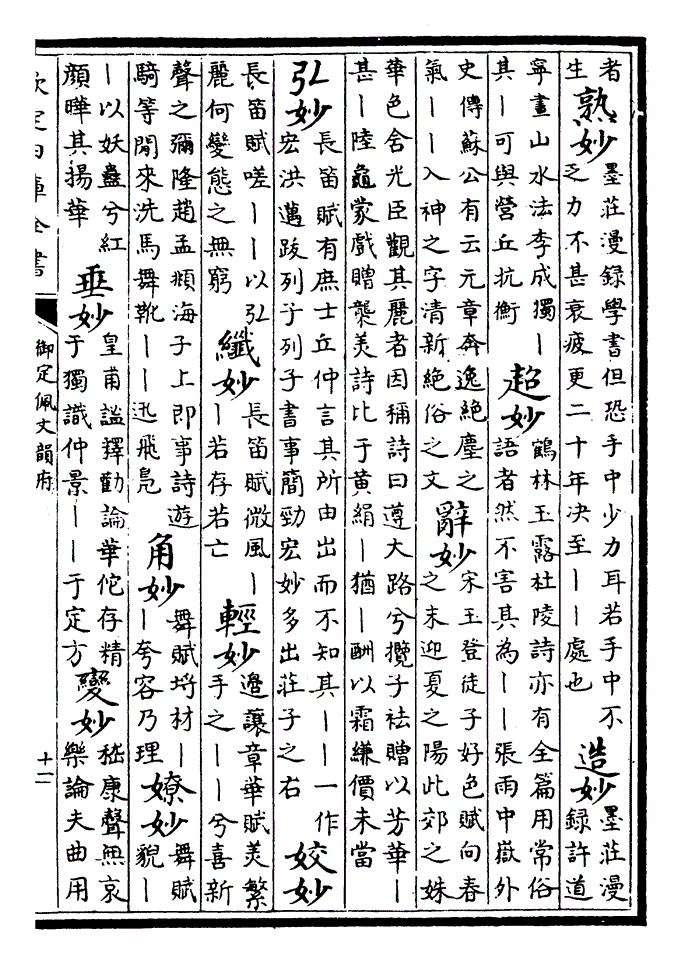 者生熟妙墨莊漫錄學書但恐手中少力耳若手中不乏力不甚衰疲更二十年决至丨丨處也造妙墨莊漫錄許道
寧畫山水法李成獨丨其丨可與營丘抗衡超妙鶴林玉露杜陵詩亦有全篇用常俗語者然不害其為丨丨張雨中嶽外
史傳蘇公有云元章奔逸絕塵之氣丨丨入神之字清新絕俗之文辭妙宋玉登徒子好色賦向春之末迎夏之陽此郊之姝
華色含光臣觀其麗者因稱詩曰遵大路兮攬子袪贈以芳華丨甚丨陸龜蒙戲贈襲美詩比于黄絹丨猶丨酬以霜縑價未當
弘妙長笛賦有庶士丘仲言其所由出而不知其丨丨一作宏洪邁跋列子列子書事簡勁宏妙多出莊子之右姣妙
長笛賦嗟丨丨以弘麗何變態之無窮纖妙長笛賦微風丨丨若存若亡輕妙邉讓章華賦美繁手之丨丨兮喜新
聲之彌隆趙孟頫海子上即事詩遊騎等閒來洗馬舞靴丨丨迅飛鳬角妙舞賦埓材丨丨夸容乃理嫽妙舞賦貌丨
丨以妖蠱兮紅顔曄其揚華垂妙皇甫謐釋勸論華佗存精于獨識仲景丨丨于定方變妙嵇康聲無哀樂論夫曲用
欽定四庫全書
御定佩文韻府
十二